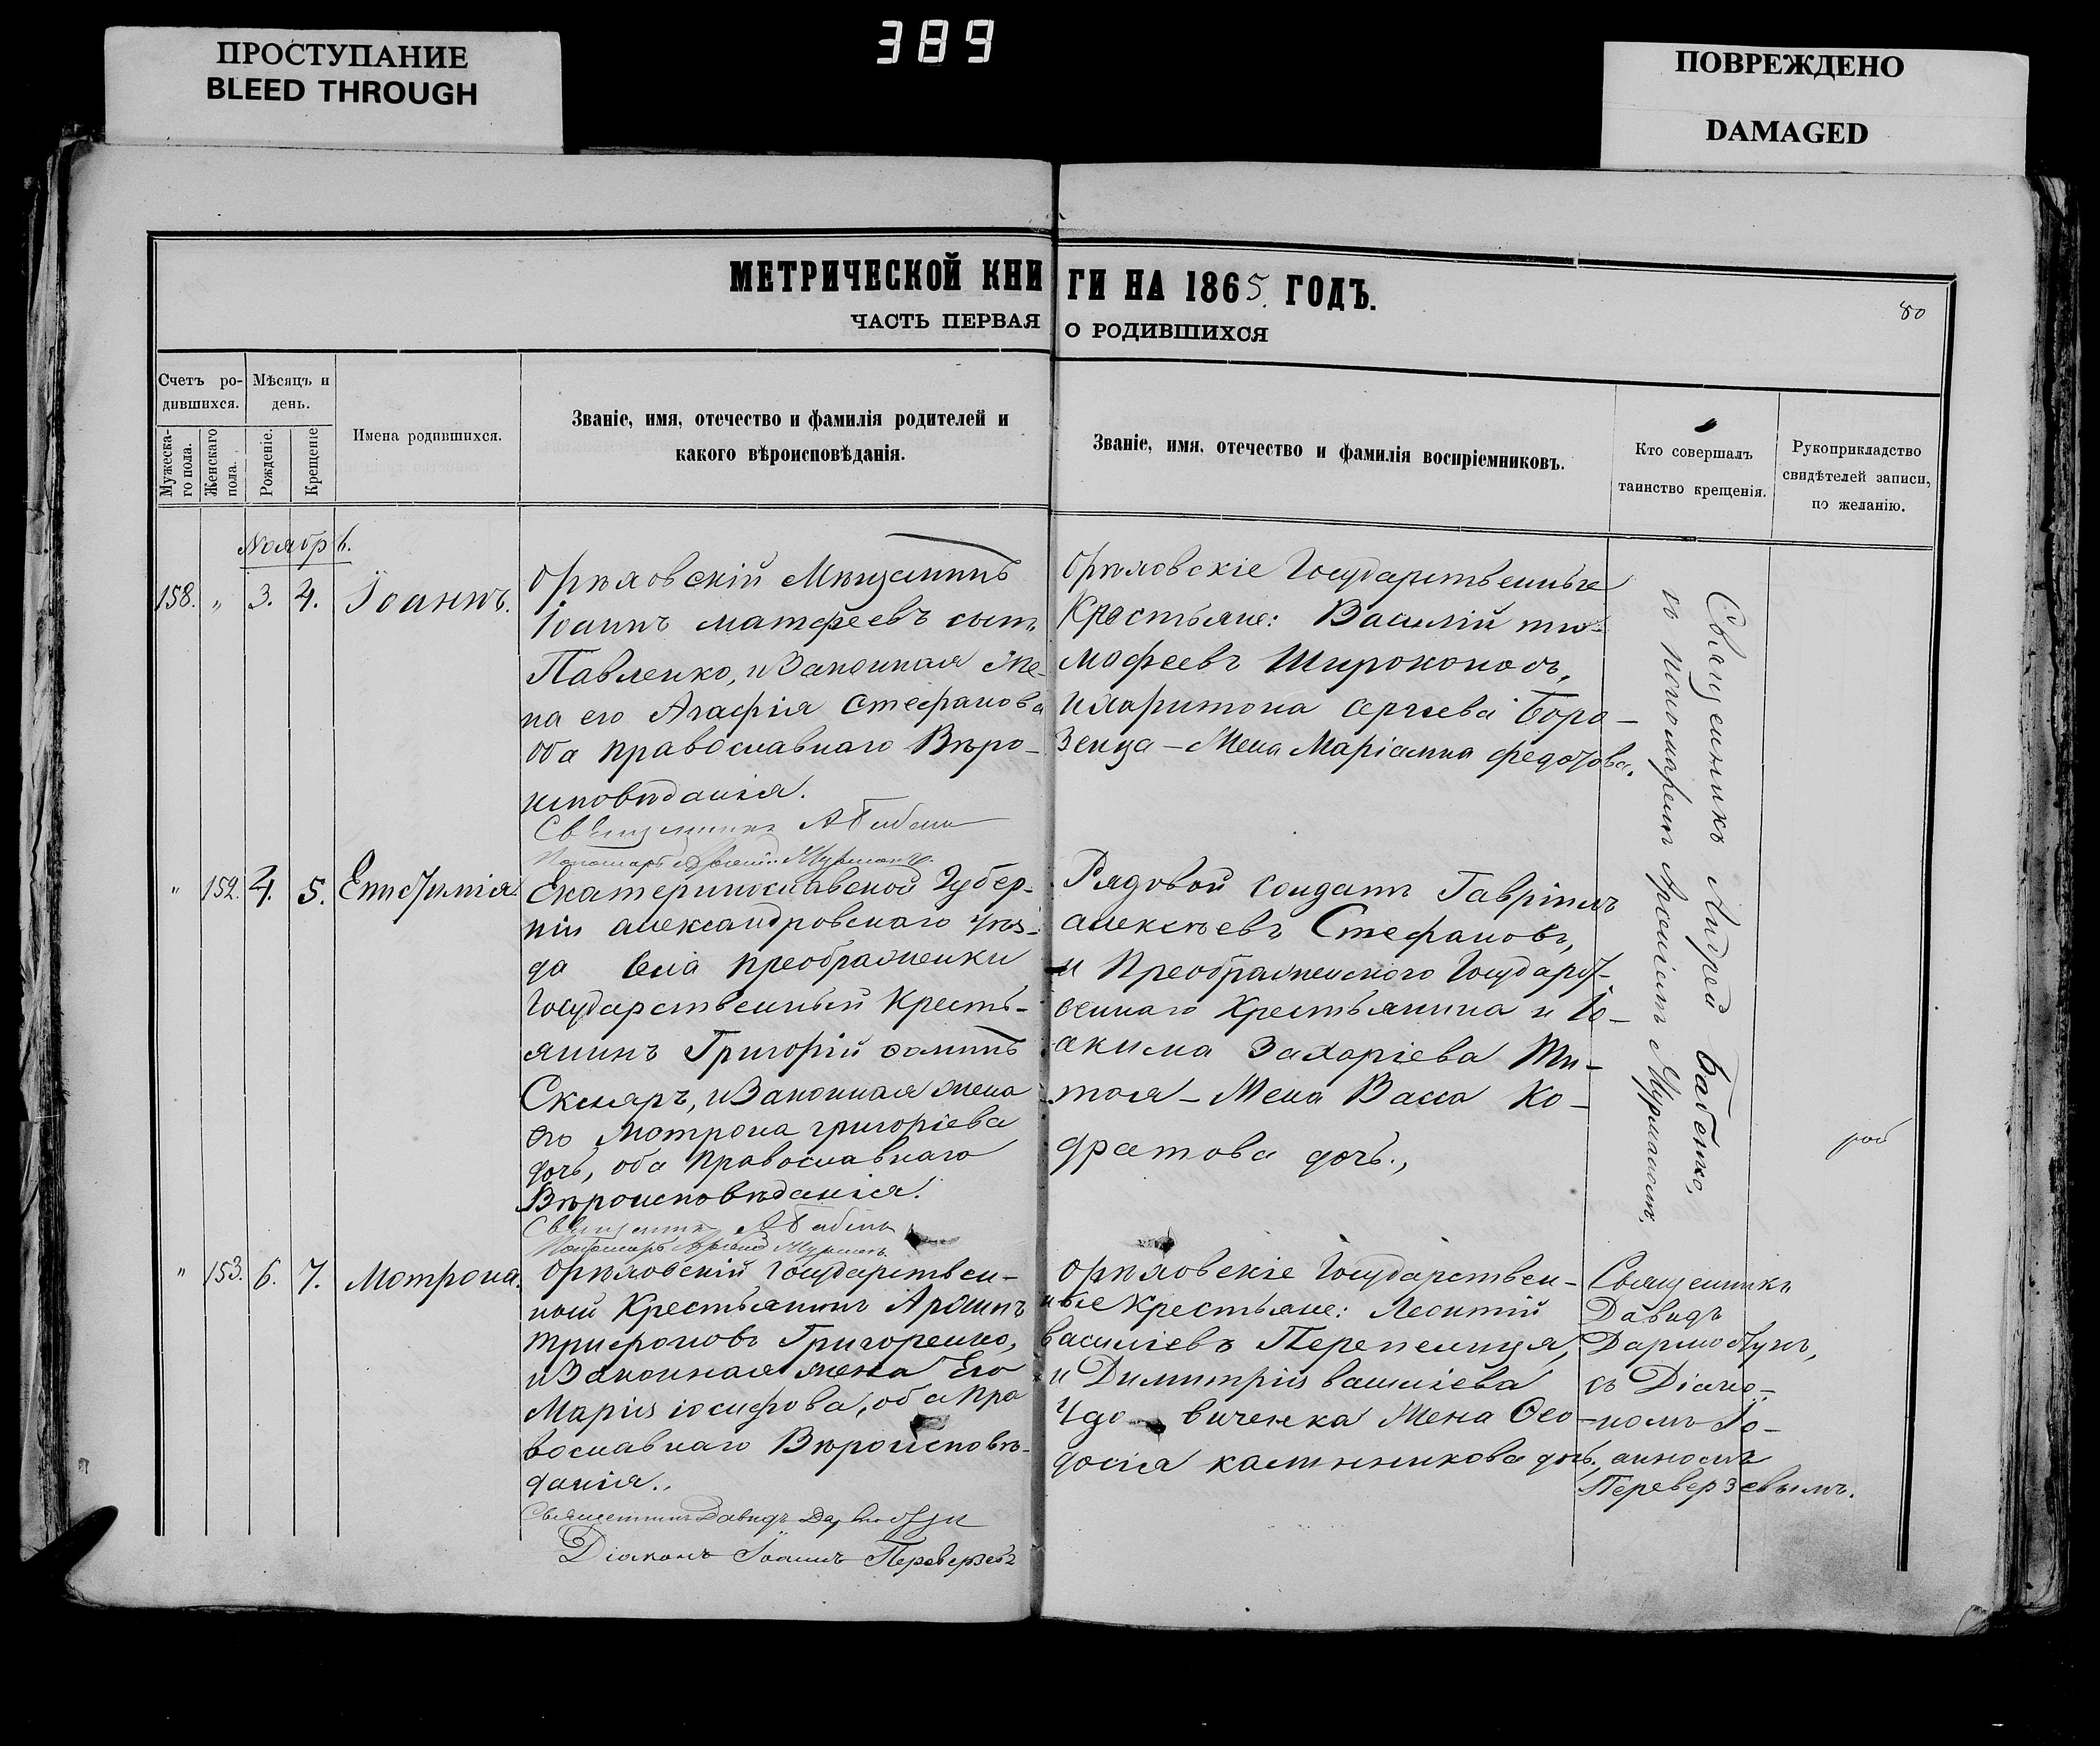 ПРОСТУПАНИЕ
BLEED THROUGH
389
ПОВРЕЖДЕНО
DAMAGED
МЕТРИЧЕСКОЙ КНИГИ НА 1865 ГОДЪ.
ЧАСТЬ ПЕРВАЯ О РОДИВШИХСЯ
80
Счетъ ро-
дившихся.
Мѣсяцъ и
день.
Мужеска-
го пола.
Женскаго
пола.
Рожденіе.
Крещеніе
Имена родившихся.
Званіе, имя, отечество и фамилія родителей и
какого вѣроисповѣданія.
Званіе, имя, отечество и фамилія воспріемниковъ.
Кто совершалъ
таинство крещенія.
Рукоприкладство
свидѣтелей записи,
по желанію.
Ноябрь.
158. " 3. 4. Іоаннъ.
Орѣховскій Мѣщанинъ
Іоаннъ Матфеевъ сынъ
Павленко, и Законная Же-
на его Агафія Стефанова
оба православнаго Вѣро-
исповѣданія.
Священникъ А Бабенко
Пономарь Арсеній Мурманъ.
Орѣховскіе Государственные
Крестьяне: Василій ти-
мофеевъ Широконосъ,
и Харитона Сергеева Боро-
зенца - Жена Маріанна Федотова.
Священникъ Андрей Бабенко,
съ пономаремъ Арсеніемъ Мурманомъ.
" 152. 4. 5. Епистимія.
Екатеринославской Губер-
ніи александровскаго уѣз-
да Села преображенки
Государственный Кресть-
янинъ Григорій
Скляръ, и Законная жена
его Мотрона григоріева
дочь, оба Православнаго
Вѣроисповѣданія.
Священникъ А Бабенко
Пономарь Арсеній Мурманъ
Рядовой Солдатъ Гавріилъ
алексѣевъ Стефановъ,
и Преображенского Государст-
веннаго Крестьянина и Іо-
акима Захаріева Ти-
толя - Жена Васса Ко-
дратова дочь.,
" 153. 6. 7. Мотрона.
Орѣховскій Государствен-
ный Крестьянинъ
трифоновъ Григоренко,
и Законная жена Его
Марія іосифова, оба Пра
вославнаго Вѣроисповѣ-
данія.
Священникъ Давидъ Дармостукъ
Діаконъ Іоаннъ Переверзевъ
Орѣховскіе Государствен-
ные крестьяне: Леонтій
василіевъ Перепелица,
и Димитрія василіева
Удо виченка Жена Ѳео-
досія калинникова дочь.,
Священникъ
Давидъ
Дармостукъ,
съ Діако-
номъ Іо-
анномъ
Переверзевымъ.